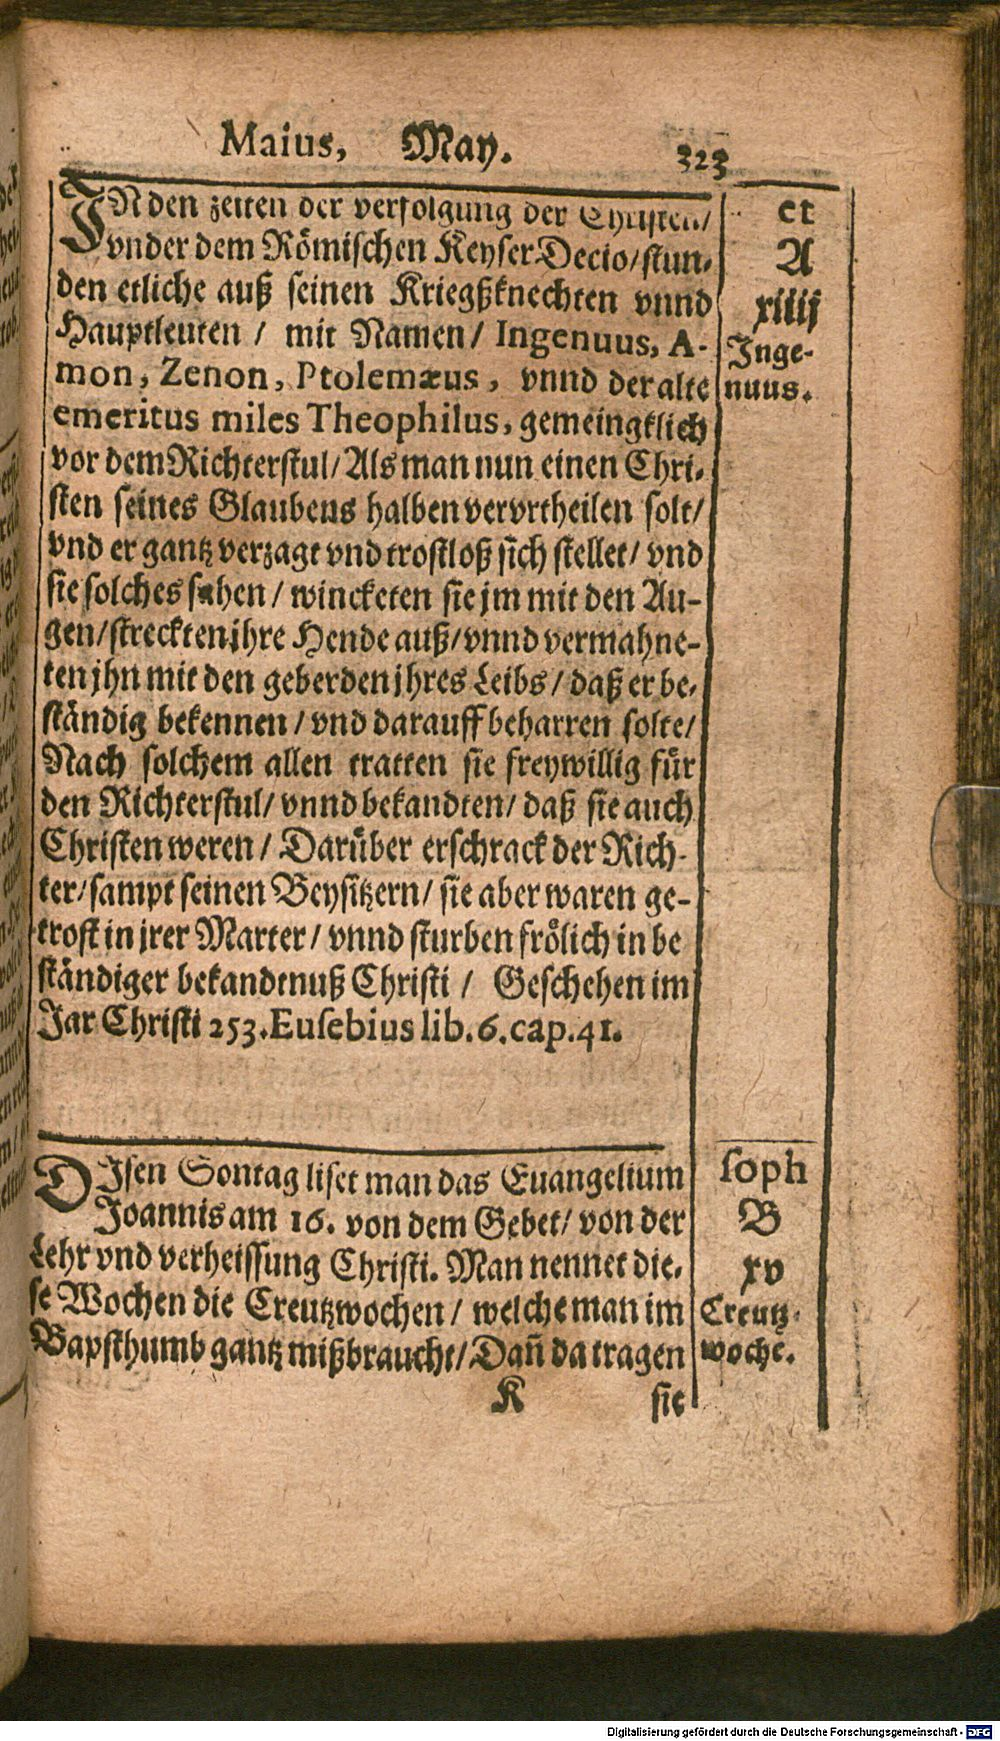 Maius, May. 323
IN den zeiten der verfolgung der Christen/
vnder dem Römischen Keyser Decio/stun-
den etliche auß seinen Kriegßknechten vnnd
Hauptleuten / mit Namen/ Ingenuus, A-
mon, Zenon, Ptolemæus, vnnd der alte
emeritus miles Theophilus, gemeingklich
vor dem Richterstul/Als man nun einen Chri-
sten seines Glaubens halben vervrtheilen solt/
vnd er gantz verzagt vnd trostloß sich stellet/ vnd
sie solches sahen / wincketen sie jm mit den Au-
gen/streckten jhre Hende auß/vnnd vermahne-
ten jhn mit den geberden jhres Leibs / daß er be-
ständig bekennen / vnd darauff beharren solte/
Nach solchem allen tratten sie freywillig für
den Richterstul/ vnnd bekandten/ daß sie auch
Christen weren / Darüber erschrack der Rich-
ter/sampt seinen Beysitzern/ sie aber waren ge-
trost in jrer Marter / vnnd sturben frölich in be
ständiger bekandtnuß Christi / Geschehen im
Jar Christi 253. Eusebius lib. 6. cap. 41.
et
A
xiiij
Inge-
nuus.
DIsen Sontag liset man das Euangelium
Joannis am 16. von dem Gebet/ von der
Lehr vnd verheissung Christi. Man nennet die-
se Wochen die Creutzwochen / welche man im
Bapsthumb gantz mißbraucht/ Dañ da tragen
K sie
soph
B
xv
Creutz-
woche.
Digitalisierung gefördert durch die Deutsche Forschungsgemeinschaft - DFG